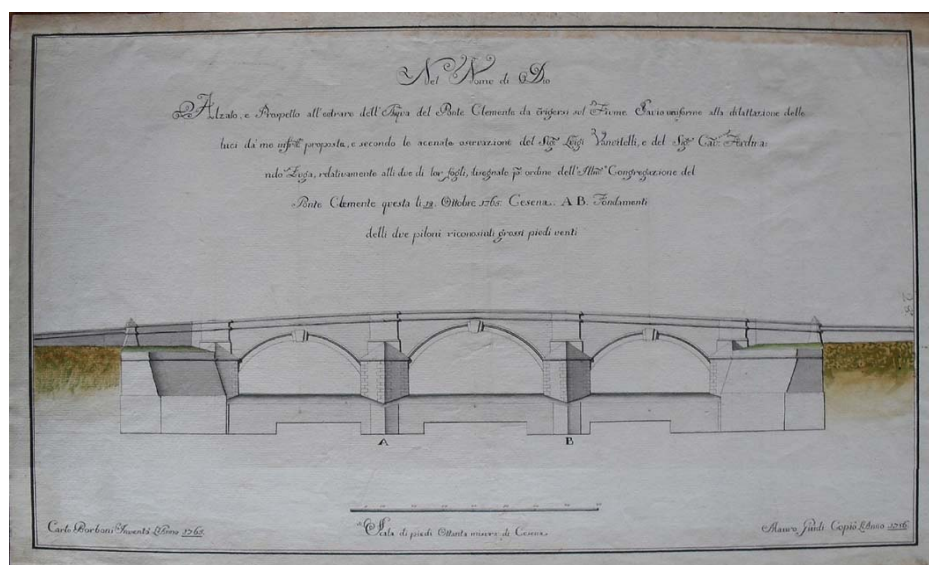 Nel Nome di Dio
Alzato, e Prospetto all'entrare dell'Aqua del Ponte Clemente da erigersi sul Fiume Savio uniforme alla dilattazione delle
luci da me proposta, e secondo le acenate oservazione del Sig.r Luigi Vanvitelli, e del Sig.r Cav.r Ferdina=
ndo Fuga, relativamente alli due di lor fogli, disegnato p. ordine dell'Illma Congregazione del
Ponte Clemente questa li 12. Ottobre 1765. Cesena. A B. Fondamenti
delli due piloni riconosciuti grossi piedi venti
A
B
Scala di piedi Ottanta misure di Cesena.
Carlo Borboni Inventò L'Anno 1765.
Mauro Guidi Copiò L'Anno